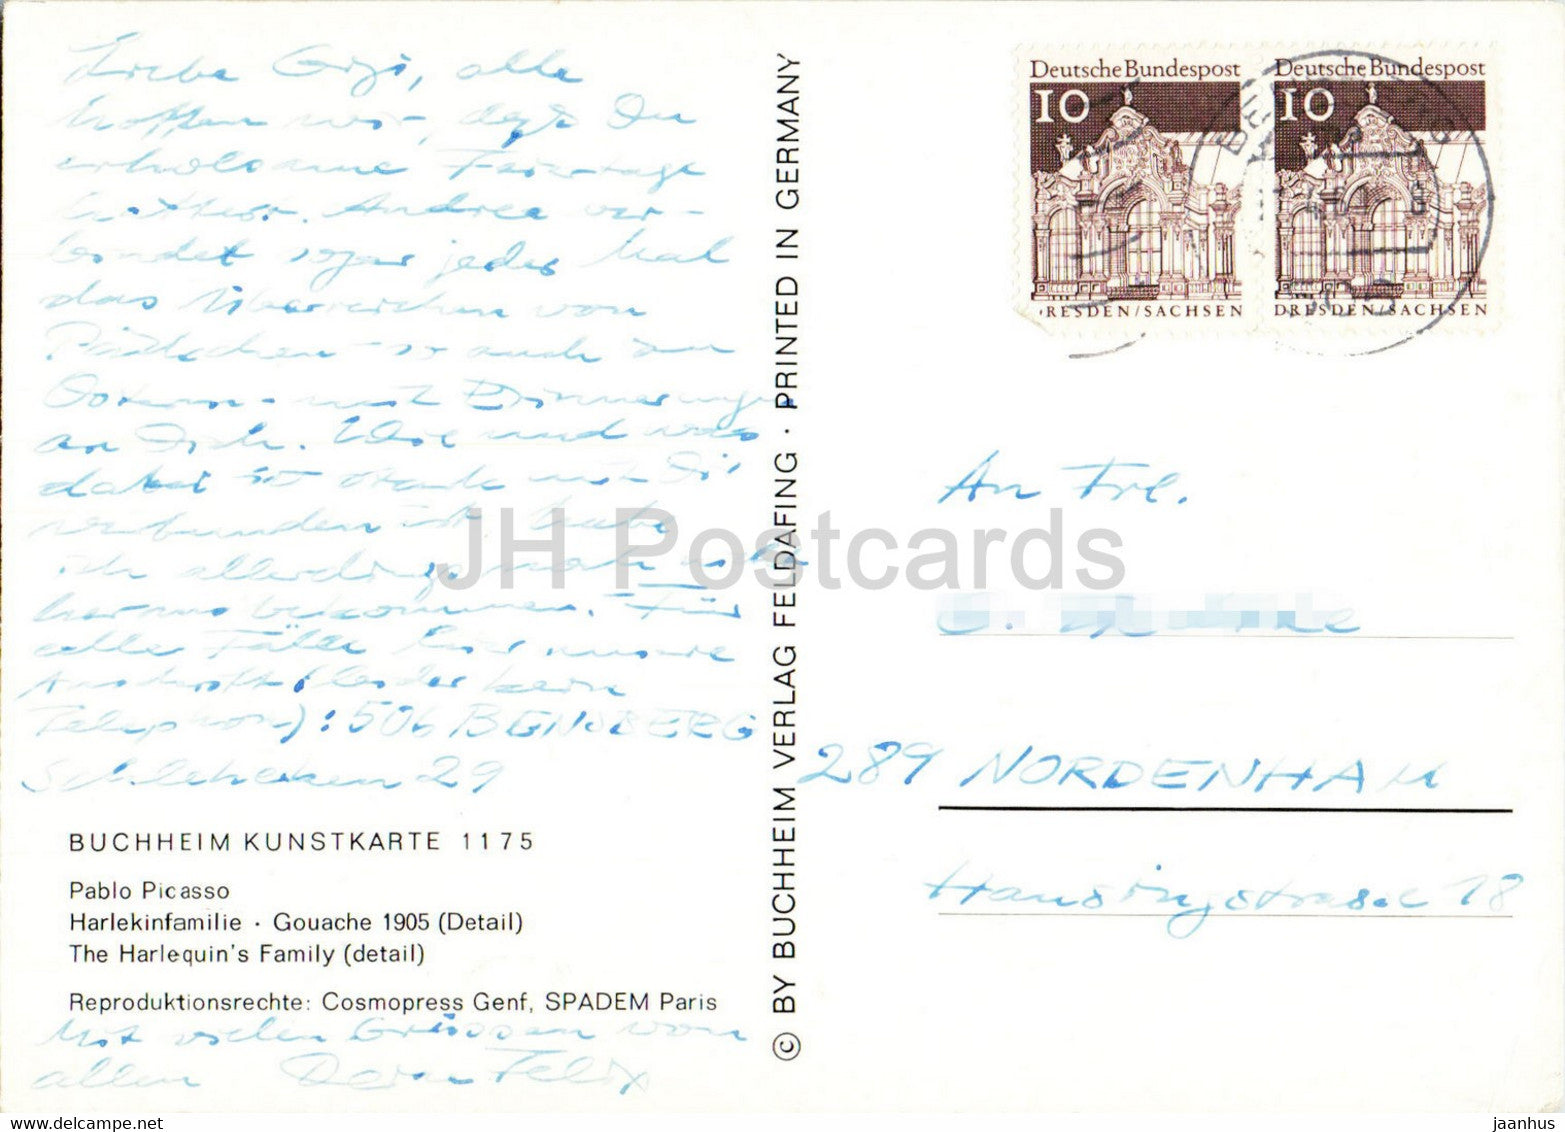 Liebe Gisi, alle
hoffen wir, daß Du
erholsame Feiertage
hattest. Andrea ver-
bindet sogar jedes Mal
das Überreichen von
Päckchen - so auch zu
Ostern - mit Erinnerungen
an Dich. Wie und was
dabei so stark mit Dir
verbunden ist habe
ich allerdings noch nicht
herausbekommen. Für
alle Fälle hier unsere
Anschrift (leider kein
Telephon): 506 BENSBERG
Schlehecken 29
BUCHHEIM KUNSTKARTE 1175
Pablo Picasso
Harlekinfamilie · Gouache 1905 (Detail)
The Harlequin's Family (detail)
Reproduktionsrechte: Cosmopress Genf, SPADEM Paris
Mit vielen Grüssen von
allen Dein Felix
© BY BUCHHEIM VERLAG FELDAFING · PRINTED IN GERMANY
Deutsche Bundespost
10
RESDEN/SACHSEN
Deutsche Bundespost
10
DRESDEN/SACHSEN
An Frl.
289 NORDENHAM
Hansingstrasse 18
JH Postcards
www.delcampe.net
jaanhus